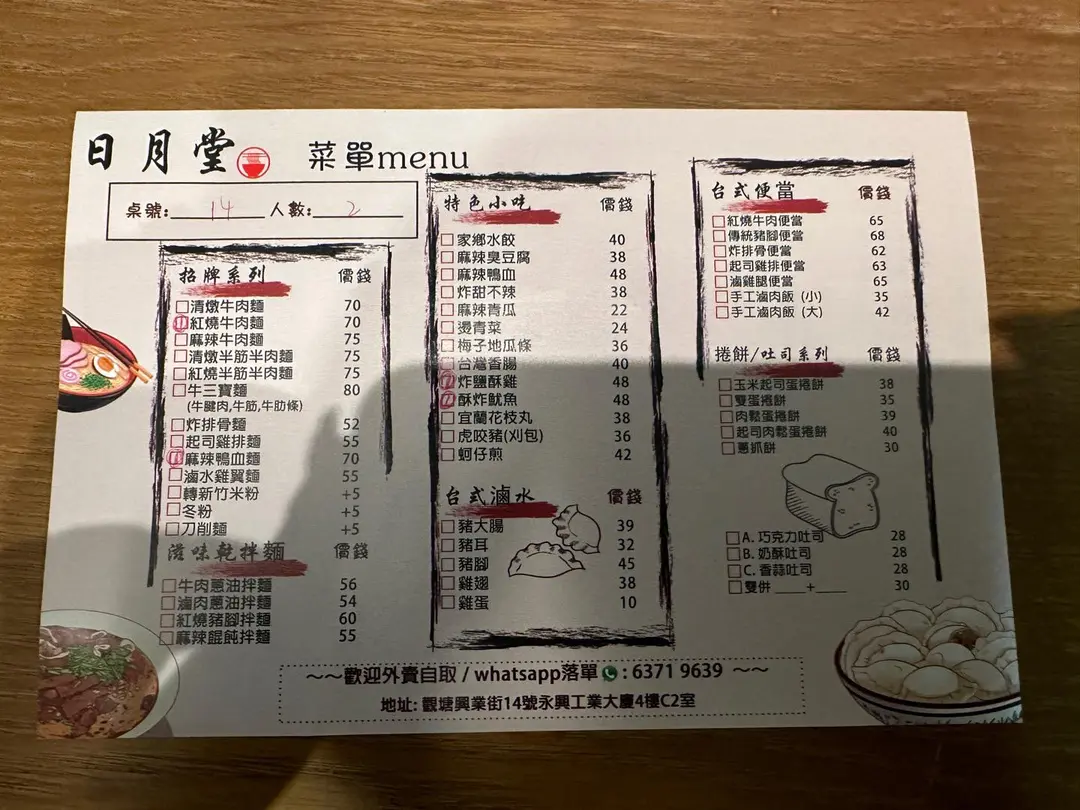 日月堂 菜單menu
桌號:14 人數:2
招牌系列 價錢
清燉牛肉麵 70
紅燒牛肉麵 70
麻辣牛肉麵 75
清燉半筋半肉麵 75
紅燒半筋半肉麵 75
牛三寶麵 80
(牛腱肉,牛筋,牛肋條)
炸排骨麵 52
起司雞排麵 55
麻辣鴨血麵 70
滷水雞翼麵 55
轉新竹米粉 +5
冬粉 +5
刀削麵 +5
滋味乾拌麵 價錢
牛肉蔥油拌麵 56
滷肉蔥油拌麵 54
紅燒豬腳拌麵 60
麻辣餛飩拌麵 55
特色小吃 價錢
家鄉水餃 40
麻辣臭豆腐 38
麻辣鴨血 48
炸甜不辣 38
麻辣青瓜 22
燙青菜 24
梅子地瓜條 36
台灣香腸 40
炸鹽酥雞 48
酥炸魷魚 48
宜蘭花枝丸 38
虎咬豬(刈包) 36
蚵仔煎 42
台式滷水 價錢
豬大腸 39
豬耳 32
豬腳 45
雞翅 38
雞蛋 10
台式便當 價錢
紅燒牛肉便當 65
傳統豬腳便當 68
炸排骨便當 62
起司雞排便當 63
滷雞腿便當 65
手工滷肉飯 (小) 35
手工滷肉飯 (大) 42
捲餅/吐司系列 價錢
玉米起司蛋捲餅 38
雙蛋捲餅 35
肉鬆蛋捲餅 39
起司肉鬆蛋捲餅 40
蔥抓餅 30
A. 巧克力吐司 28
B. 奶酥吐司 28
C. 香蒜吐司 28
雙併 ____+____ 30
～～歡迎外賣自取 / whatsapp落單 : 6371 9639 ～～
地址: 觀塘興業街14號永興工業大廈4樓C2室